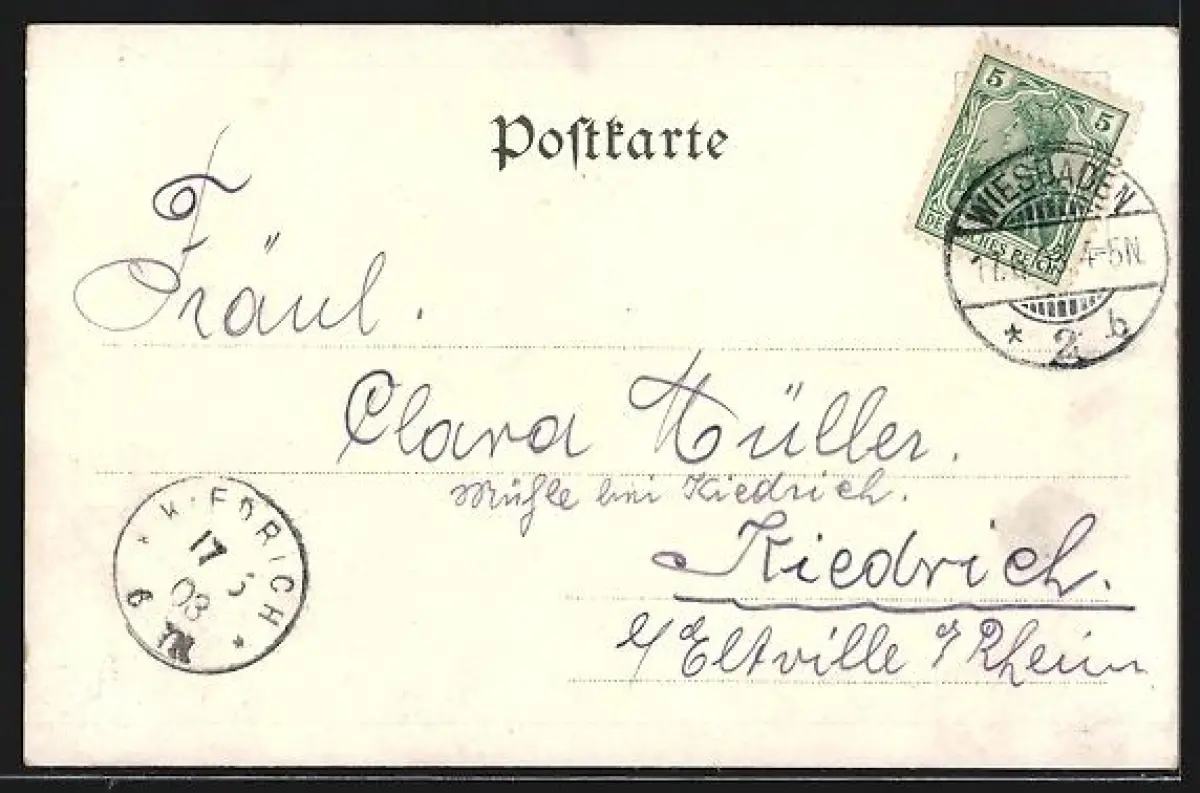 Postkarte
5 5
DEUTSCHES REICH
WIESBADEN
4-5N
* 2 b
Fräul.
Clara Müller.
Mühle bei Kiedrich.
Kiedrich.
Eltville Rhein
17 5
03